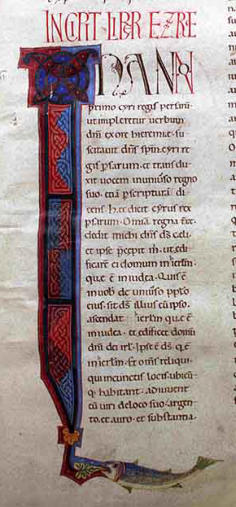 INCIPIT LIBER EZRE
IN ANN
primo cyri regis persarum
ut impleretur verbum
dni ex ore hieremie. su
scitavit dns spm cyri re
gis psarum. et transdu
xit vocem in universo regno
suo. etiam p scriptura di
cens. hec dicit cyrus rex
psarum. Omia regna terre
dedit michi dns ds celi.
et ipse precepit m. ut edi
ficarem ei domum in ierlm
que e in iudea. Quis e
in vob de universo pplo
eius. sit ds illius cu ipso.
ascendat ierlm que e
in iudea. et edificet domu
dni dei isrl. Ipse e ds. q e
in ierlm. Et oms reliqui.
qui in cunctis locis. ubicu
q habitant. adiuvent
eu viri de loco suo. argen
to. et auro. et substantia.